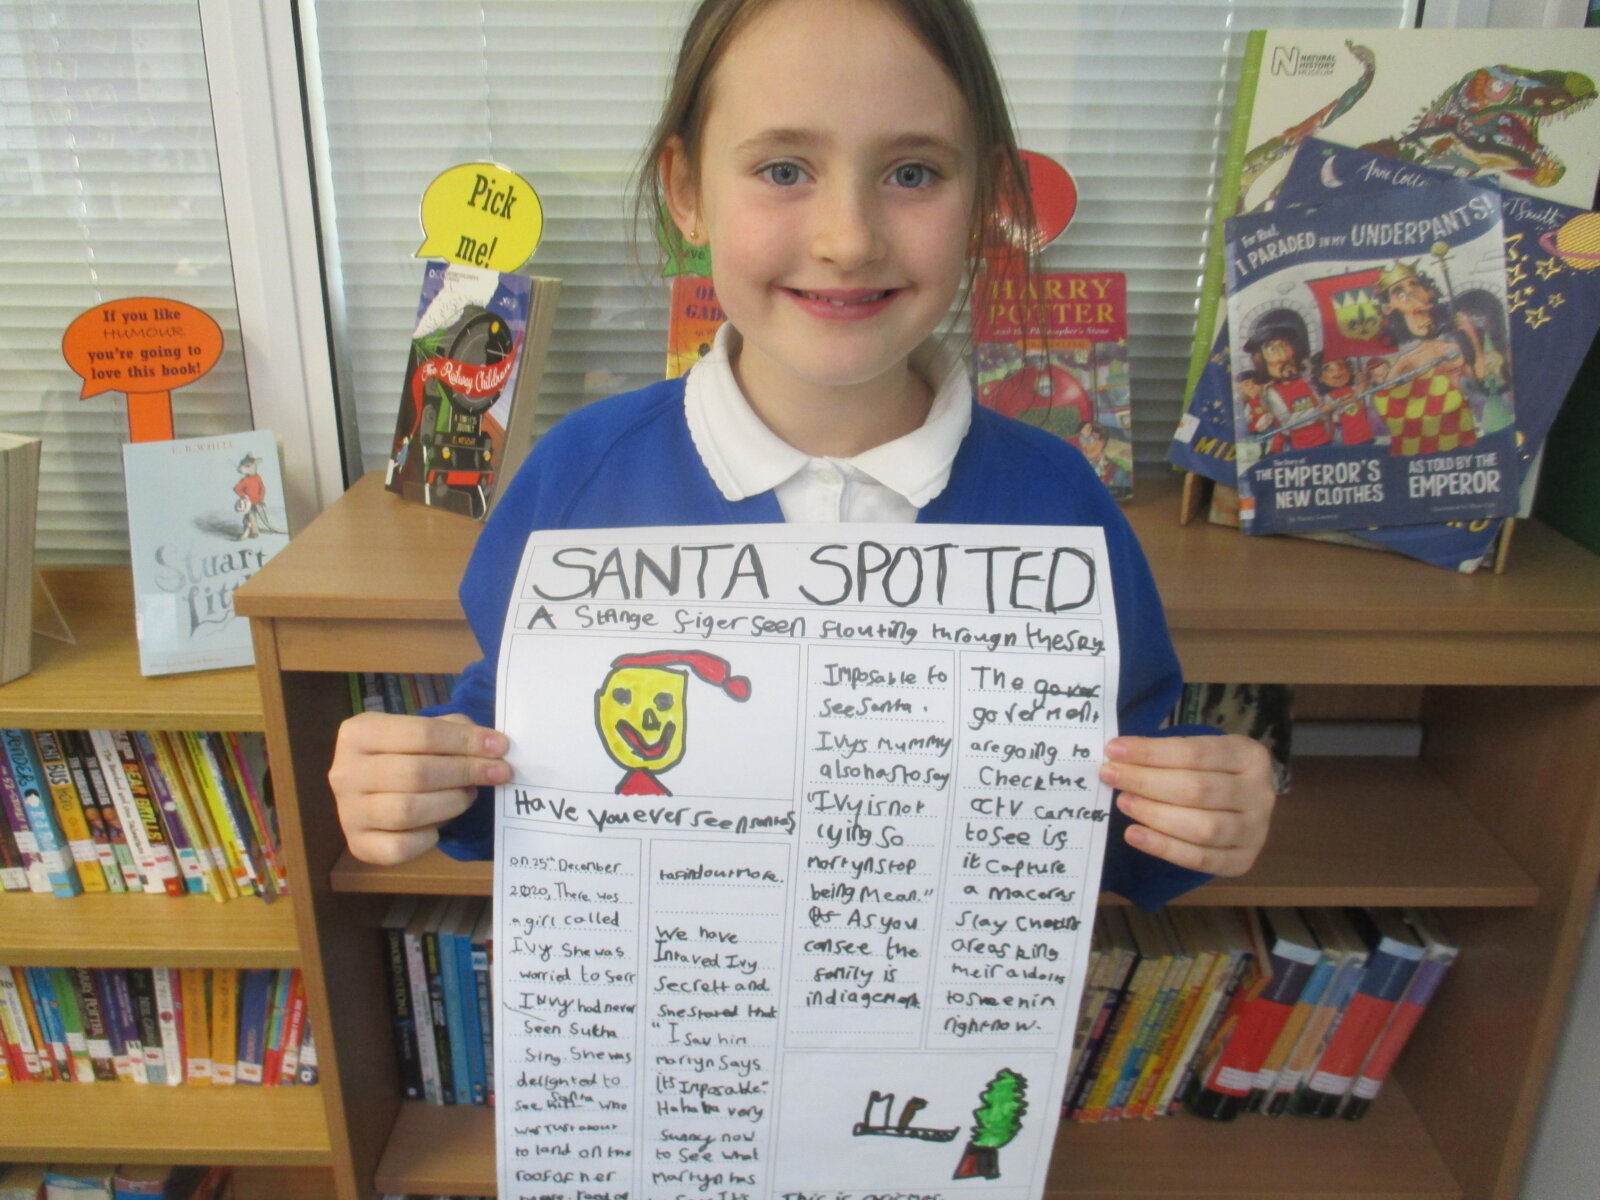 Pick
me!
If you like
HUMOUR
you're going to
love this book!
E. B. WHITE
Stuart
Lit
The Railway Children
E. NESBIT
HARRY
POTTER
and the Philosopher's Stone
NATURAL
HISTORY
MUSEUM
For Real,
I PARADED IN MY UNDERPANTS!
The Story of
THE EMPEROR'S
NEW CLOTHES
AS TOLD BY THE
EMPEROR
SANTA SPOTTED
A Stange figer seen flouting through the sky
Have you ever seen santa
on 25th December
2020, There was
a girl called
Ivy. She was
worried to Serr
Invy had never
Seen Sutha
Sing. She was
delighted to
see Santa who
was Just about
to land on the
roof of her
to find out more.
We have
Intaved Ivy
Secrett and
She stared that
"I saw him
martyn says
its Imposable".
Hahaha very
funny now
to see what
martyn has
Imposable to
see santa.
Ivys mummy
also has to say
"Ivy is not
lying so
martyn stop
being mean."
As you
can see the
family is
in diagement
The
goverment
are going to
Check the
CCTV
to see if
it capture
a
Slay
areas king
their aldons
to
right now.